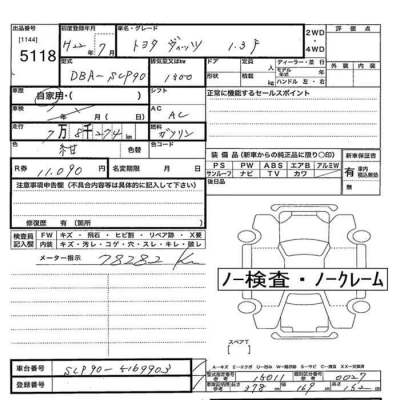 出品番号
[1144]
5118
初度登録年月
H22年 7月
車名・グレード
トヨタ ヴィッツ 1.3F
2WD
・
4WD
評価点
外装 内装
型式
DBA-SCP90
排気量又はkw
1300
ドア 定員 人
形状 積載 kg
ディーラー・並行
モデル年式 年
ハンドル 左・右
車歴
自家用・( )
シフト
正常に機能するセールスポイント
車検
年 月 日
AC
AC
走行
7万8千274km
燃料
ガソリン
色
紺
色替
色コード
R券
11,090円
名変期限 月 日
装備品(新車からの純正品に限り○印)
新車保証書
PS PW ABS エアB アルミW
サンルーフ ナビ TV カワ
有
車内積込無効
注意事項申告欄(不具合内容等は具体的に記入して下さい)
後日品
修復歴 有(箇所)
検査員記入欄
FW キズ・飛石・ヒビ割・リペア跡・X要
内装 キズ・汚レ・コゲ・穴・スレ・キレ・破レ
メーター指示
78282 Km
ノー検査・ノークレーム
スペアT
車台番号
SCP90-5169903
登録番号
A-キズ E-エクボ U-凹ミ W-補修跡 S-サビ C-腐食 XX-交換済
型式指定番号
15011
類別区分番号
0027
長さ
378cm
幅
169cm
高さ
152cm